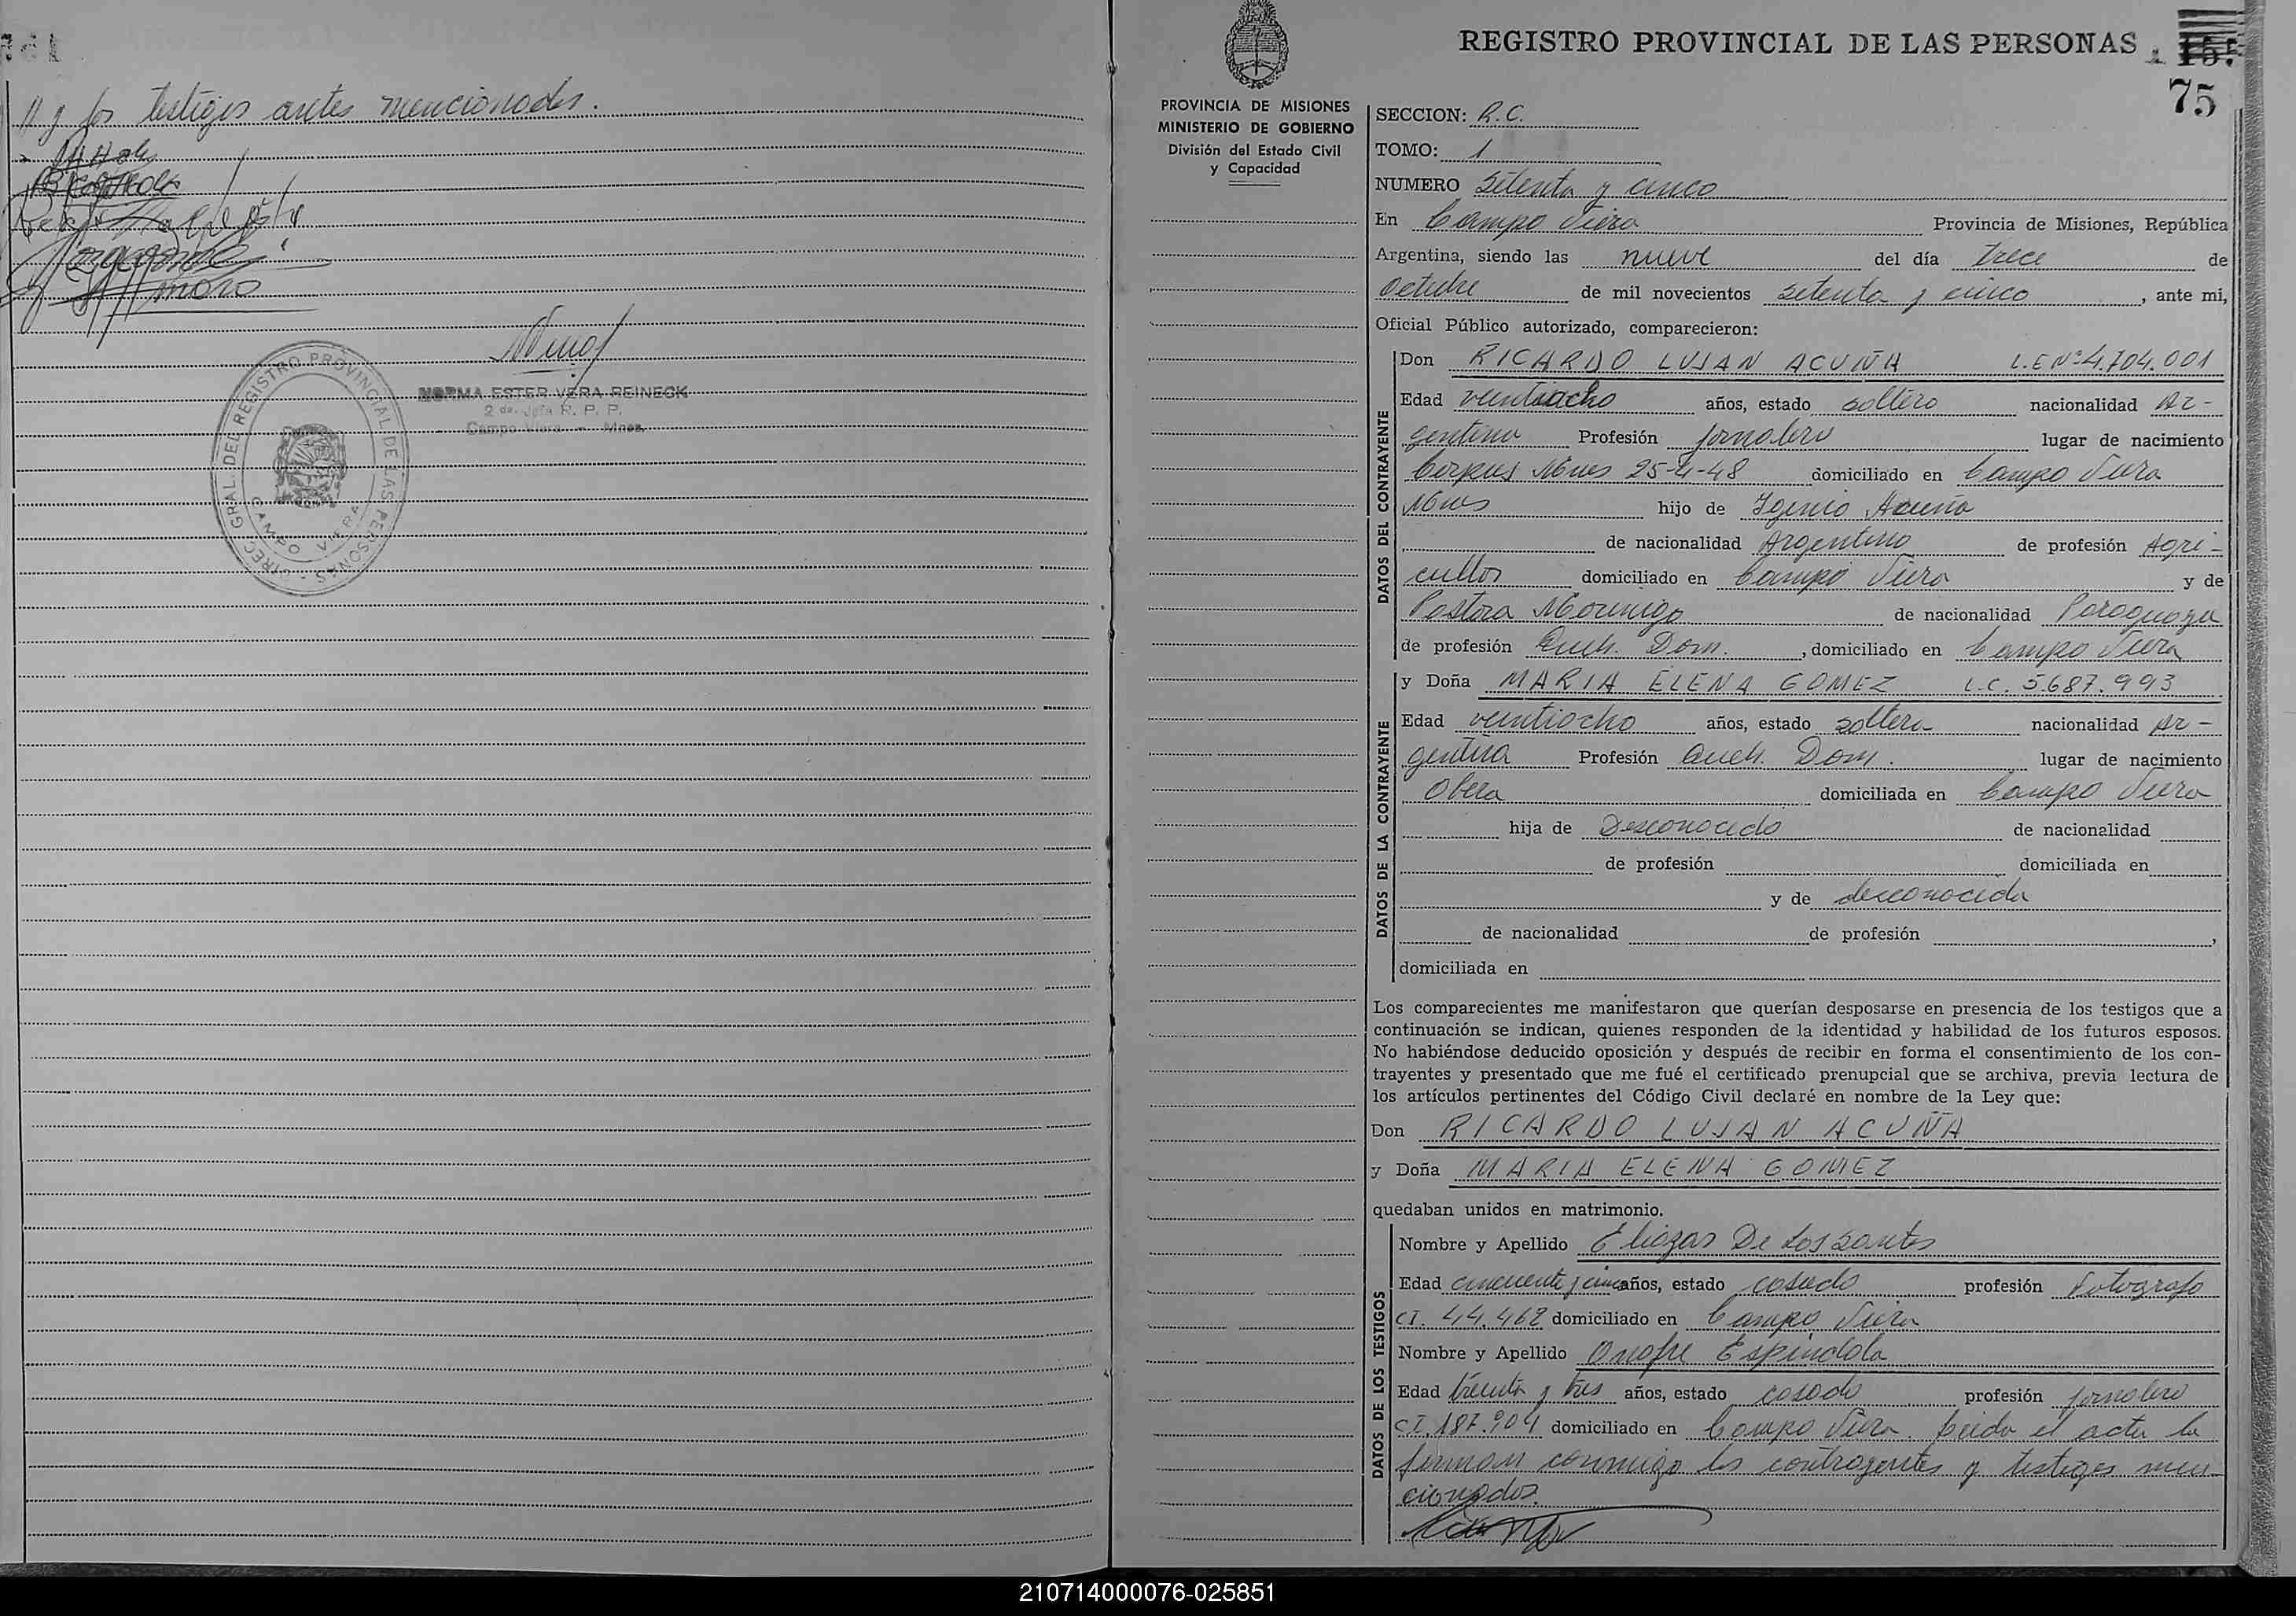 y los testigos antes mencionados.
NORMA ESTER VERA REINECK
2da. Jefa R. P. P.
Campo Viera - Mnes.
DIREC. GRAL. DEL REGISTRO PROVINCIAL DE LAS PERSONAS
CAMPO VIERA
REGISTRO PROVINCIAL DE LAS PERSONAS
75
PROVINCIA DE MISIONES
MINISTERIO DE GOBIERNO
División del Estado Civil
y Capacidad
SECCION: R.C.
TOMO: 1
NUMERO Setenta y cinco
En Campo Viera Provincia de Misiones, República
Argentina, siendo las nueve del día trece de
Octubre de mil novecientos setenta y cinco, ante mi,
Oficial Público autorizado, comparecieron:
DATOS DEL CONTRAYENTE
Don RICARDO LUJAN ACUÑA L.E Nº 4.704.001
Edad veintiocho años, estado soltero nacionalidad Ar-
gentina Profesión jornalero lugar de nacimiento
Corpus Mnes 25-4-48 domiciliado en Campo Viera
Mnes hijo de Igenio Acuña
de nacionalidad Argentino de profesión Agri-
cultor domiciliado en Campo Viera y de
Pastora Morinigo de nacionalidad Paraguaya
de profesión Queh. Dom., domiciliado en Campo Viera
DATOS DE LA CONTRAYENTE
y Doña MARIA ELENA GOMEZ L.C. 5.687.993
Edad veintiocho años, estado soltera nacionalidad Ar-
gentina Profesión Queh. Dom. lugar de nacimiento
Obera domiciliada en Campo Viera
hija de Desconocido de nacionalidad
de profesión domiciliada en
y de desconocida
de nacionalidad de profesión ,
domiciliada en
Los comparecientes me manifestaron que querían desposarse en presencia de los testigos que a
continuación se indican, quienes responden de la identidad y habilidad de los futuros esposos.
No habiéndose deducido oposición y después de recibir en forma el consentimiento de los con-
trayentes y presentado que me fué el certificado prenupcial que se archiva, previa lectura de
los artículos pertinentes del Código Civil declaré en nombre de la Ley que:
Don RICARDO LUJAN ACUÑA
y Doña MARIA ELENA GOMEZ
quedaban unidos en matrimonio.
DATOS DE LOS TESTIGOS
Nombre y Apellido Eliazar De Los Santos
Edad cincuenta y cinco años, estado casado profesión fotografo
CI. 44.462 domiciliado en Campo Viera
Nombre y Apellido Onofre Espindola
Edad treinta y tres años, estado casado profesión jornalero
C.I. 187.904 domiciliado en Campo Viera. Leida el acta la
firman conmigo los contrayentes y testigos men-
cionados.
210714000076-025851